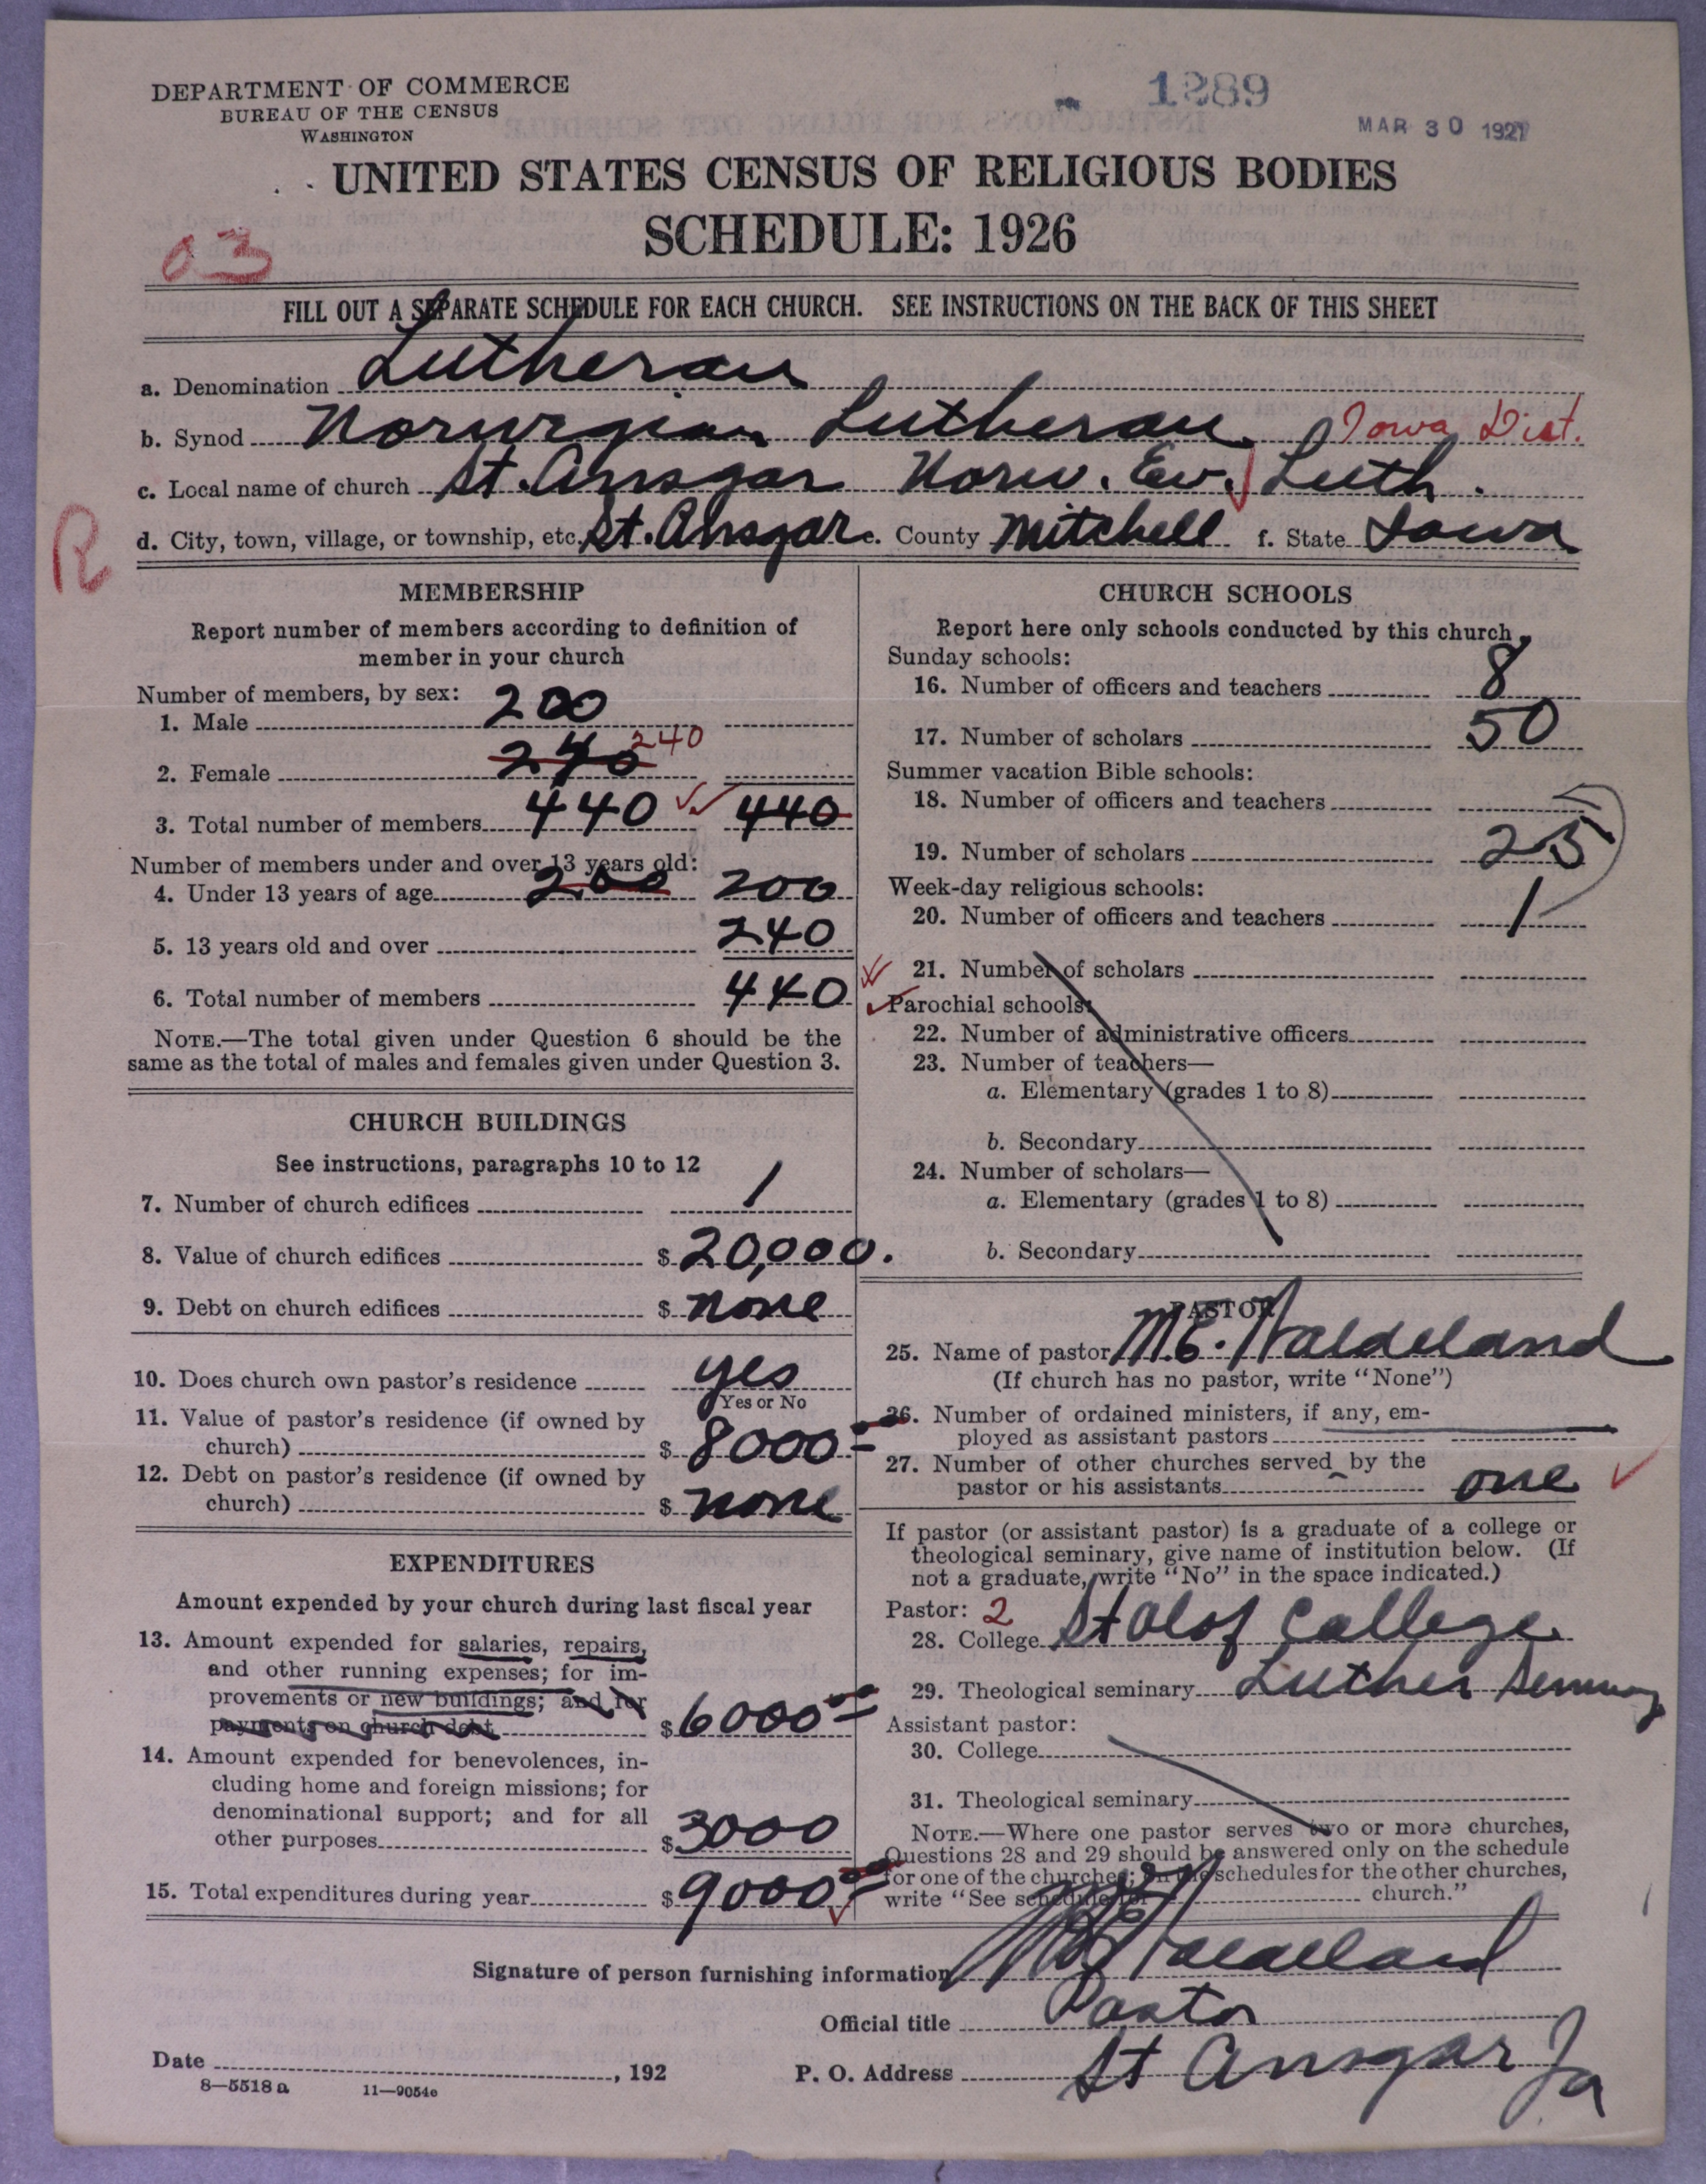 DEPARTMENT OF COMMERCE
BUREAU OF THE CENSUS
WASHINGTON
1289
MAR 30 1927
UNITED STATES CENSUS OF RELIGIOUS BODIES
SCHEDULE: 1926
03
FILL OUT A SEPARATE SCHEDULE FOR EACH CHURCH. SEE INSTRUCTIONS ON THE BACK OF THIS SHEET
a. Denomination Lutheran
b. Synod Norwegian Lutheran Iowa Dist.
c. Local name of church St. Ansgar Norw. Ev. Luth.
R
d. City, town, village, or township, etc. St. Ansgar e. County Mitchell f. State Iowa
MEMBERSHIP
Report number of members according to definition of
member in your church
Number of members, by sex:
1. Male 200
2. Female 240 240
3. Total number of members 440 440
Number of members under and over 13 years old:
4. Under 13 years of age 200 200
5. 13 years old and over 240
6. Total number of members 440
NOTE.—The total given under Question 6 should be the
same as the total of males and females given under Question 3.
CHURCH BUILDINGS
See instructions, paragraphs 10 to 12
7. Number of church edifices 1
8. Value of church edifices $ 20,000.
9. Debt on church edifices $ none
10. Does church own pastor's residence yes
Yes or No
11. Value of pastor's residence (if owned by
church) $ 8000
12. Debt on pastor's residence (if owned by
church) $ none
EXPENDITURES
Amount expended by your church during last fiscal year
13. Amount expended for salaries, repairs,
and other running expenses; for im-
provements or new buildings; and for
payments on church debt $ 6000
14. Amount expended for benevolences, in-
cluding home and foreign missions; for
denominational support; and for all
other purposes $ 3000
15. Total expenditures during year $ 9000
CHURCH SCHOOLS
Report here only schools conducted by this church
Sunday schools:
16. Number of officers and teachers 8
17. Number of scholars 50
Summer vacation Bible schools:
18. Number of officers and teachers
19. Number of scholars 25
Week-day religious schools:
20. Number of officers and teachers 1
21. Number of scholars
Parochial schools:
22. Number of administrative officers
23. Number of teachers—
a. Elementary (grades 1 to 8)
b. Secondary
24. Number of scholars—
a. Elementary (grades 1 to 8)
b. Secondary
PASTOR
25. Name of pastor M.E. Waldeland
(If church has no pastor, write "None")
26. Number of ordained ministers, if any, em-
ployed as assistant pastors
27. Number of other churches served by the
pastor or his assistants one
If pastor (or assistant pastor) is a graduate of a college or
theological seminary, give name of institution below. (If
not a graduate, write "No" in the space indicated.)
Pastor: 2
28. College St Olof College
29. Theological seminary Luther Seminary
Assistant pastor:
30. College
31. Theological seminary
NOTE.—Where one pastor serves two or more churches,
Questions 28 and 29 should be answered only on the schedule
for one of the churches; on the schedules for the other churches,
write "See schedule for church."
Signature of person furnishing information M E Waldeland
Official title Pastor
Date , 192 P. O. Address St Ansgar Ia
8—5518 a 11—9054c